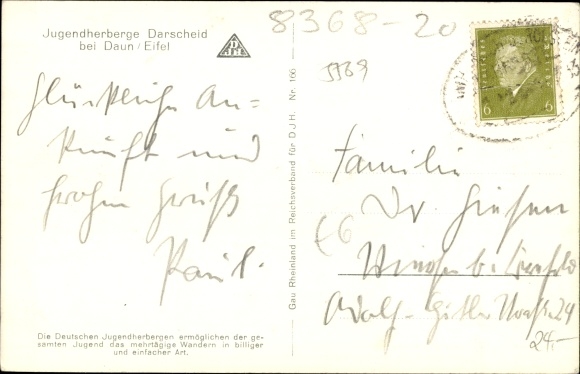 Jugendherberge Darscheid
bei Daun / Eifel
DJH
8368-20
5769
Deutsches Reich
6 6
Glückliche An=
kunft und
frohen Gruß
Paul.
Gau Rheinland im Reichsverband für D.J.H. Nr. 160
Familie
Dr. Giesen
b. Krefeld
Adolf-Hitler 24
€6
24.-
Die Deutschen Jugendherbergen ermöglichen der ge-
samten Jugend das mehrtägige Wandern in billiger
und einfacher Art.